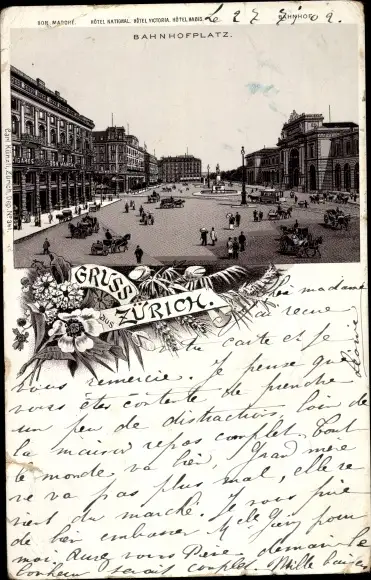 BON MARCHÉ. HÔTEL NATIONAL. HÔTEL VICTORIA. HÔTEL HABIS. BAHNHOF.
Le 27
BAHNHOFPLATZ.
CIGARES
Carl Künzli, Zürich, Dep. No
GRUSS
aus
ZÜRICH.
madame
a reçu
votre carte et je
vous remercie. Je pense que
vous êtes contente de prendre
un peu de distraction, loin de
la maison repos complet. Tout
le monde va bien, Grand mère
ne va pas plus mal, elle re
vient du marché. Je vous prie
de bien embrasser Mlle pour
moi. Avec vous Père demain le
bonheur serait complet. Mille baisers